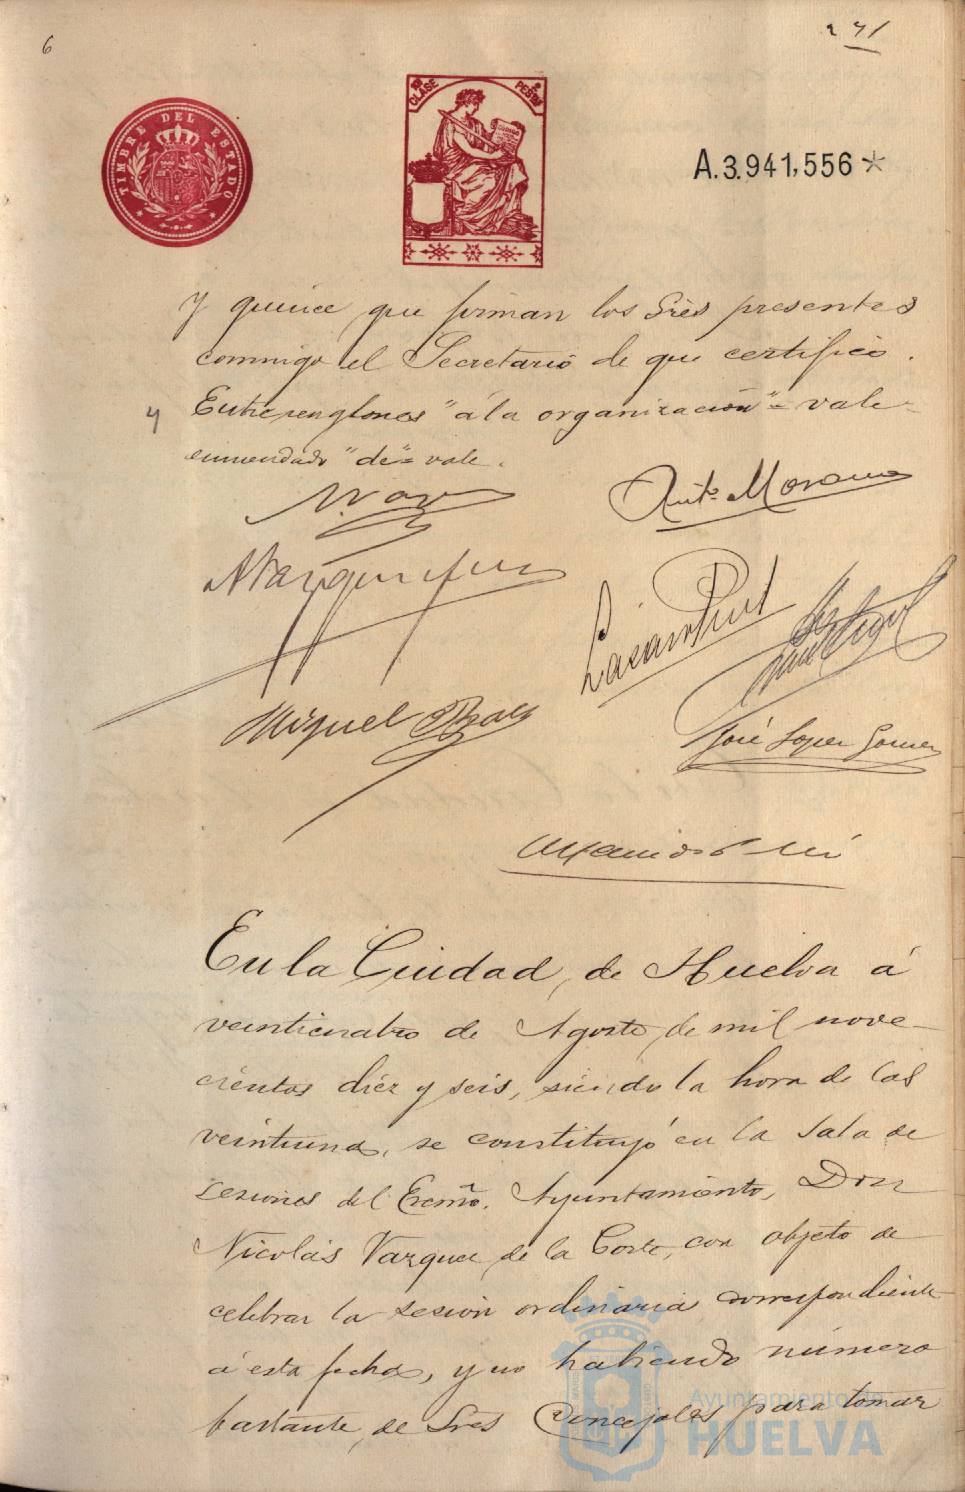 6
271
TIMBRE DEL ESTADO
CLASE
PESETAS
A.3.941,556*
y quince que firman los Sres presentes
conmigo el Secretario de que certifico.
Entrerenglones "á la organización" = vale =
y
enmendado "de" = vale.
Antº Moreno
Lázaro Prut
Miguel
José Lopez Gomez
En la Ciudad de Huelva á
veinticuatro de Agosto de mil nove-
cientos diez y seis, siendo la hora de las
veintiuna, se constituyó en la Sala de
Sesiones del Excmo. Ayuntamiento, Don
Nicolás Vazquez de la Corte, con objeto de
celebrar la sesión ordinaria correspondiente
á esta fecha, y no habiendo número
bastante de Sres Concejales para tomar
Ayuntamiento de
HUELVA